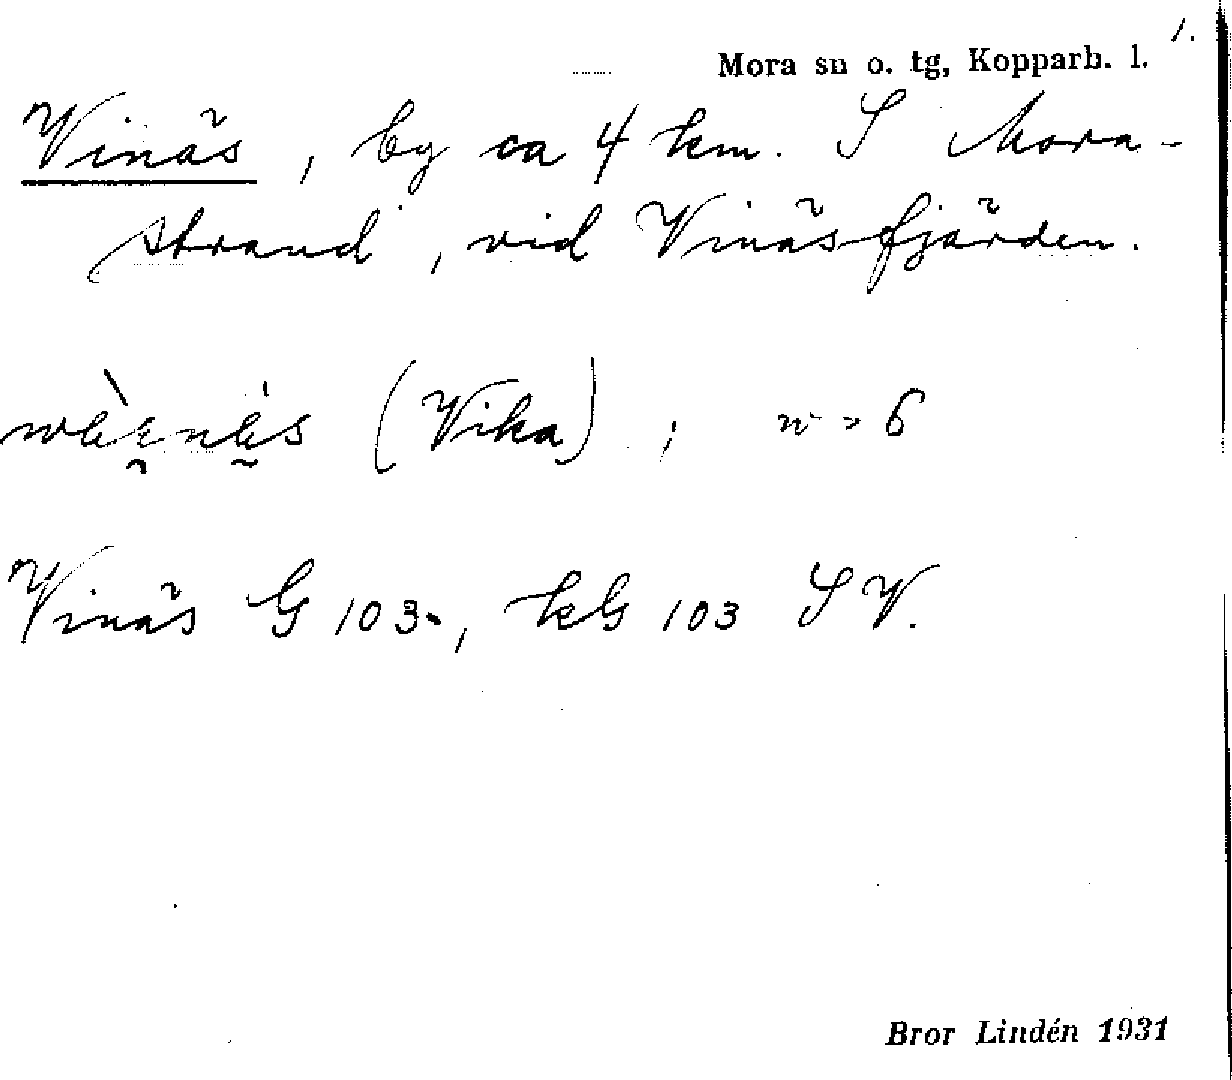 1.
Mora sn o. tg, Kopparb. l.
Vinäs, by ca 4 km. S Mora-
strand, vid Vinäsfjärden.
(Vika); w = 6
Vinäs G 103, kG 103 SV.
Bror Lindén 1931